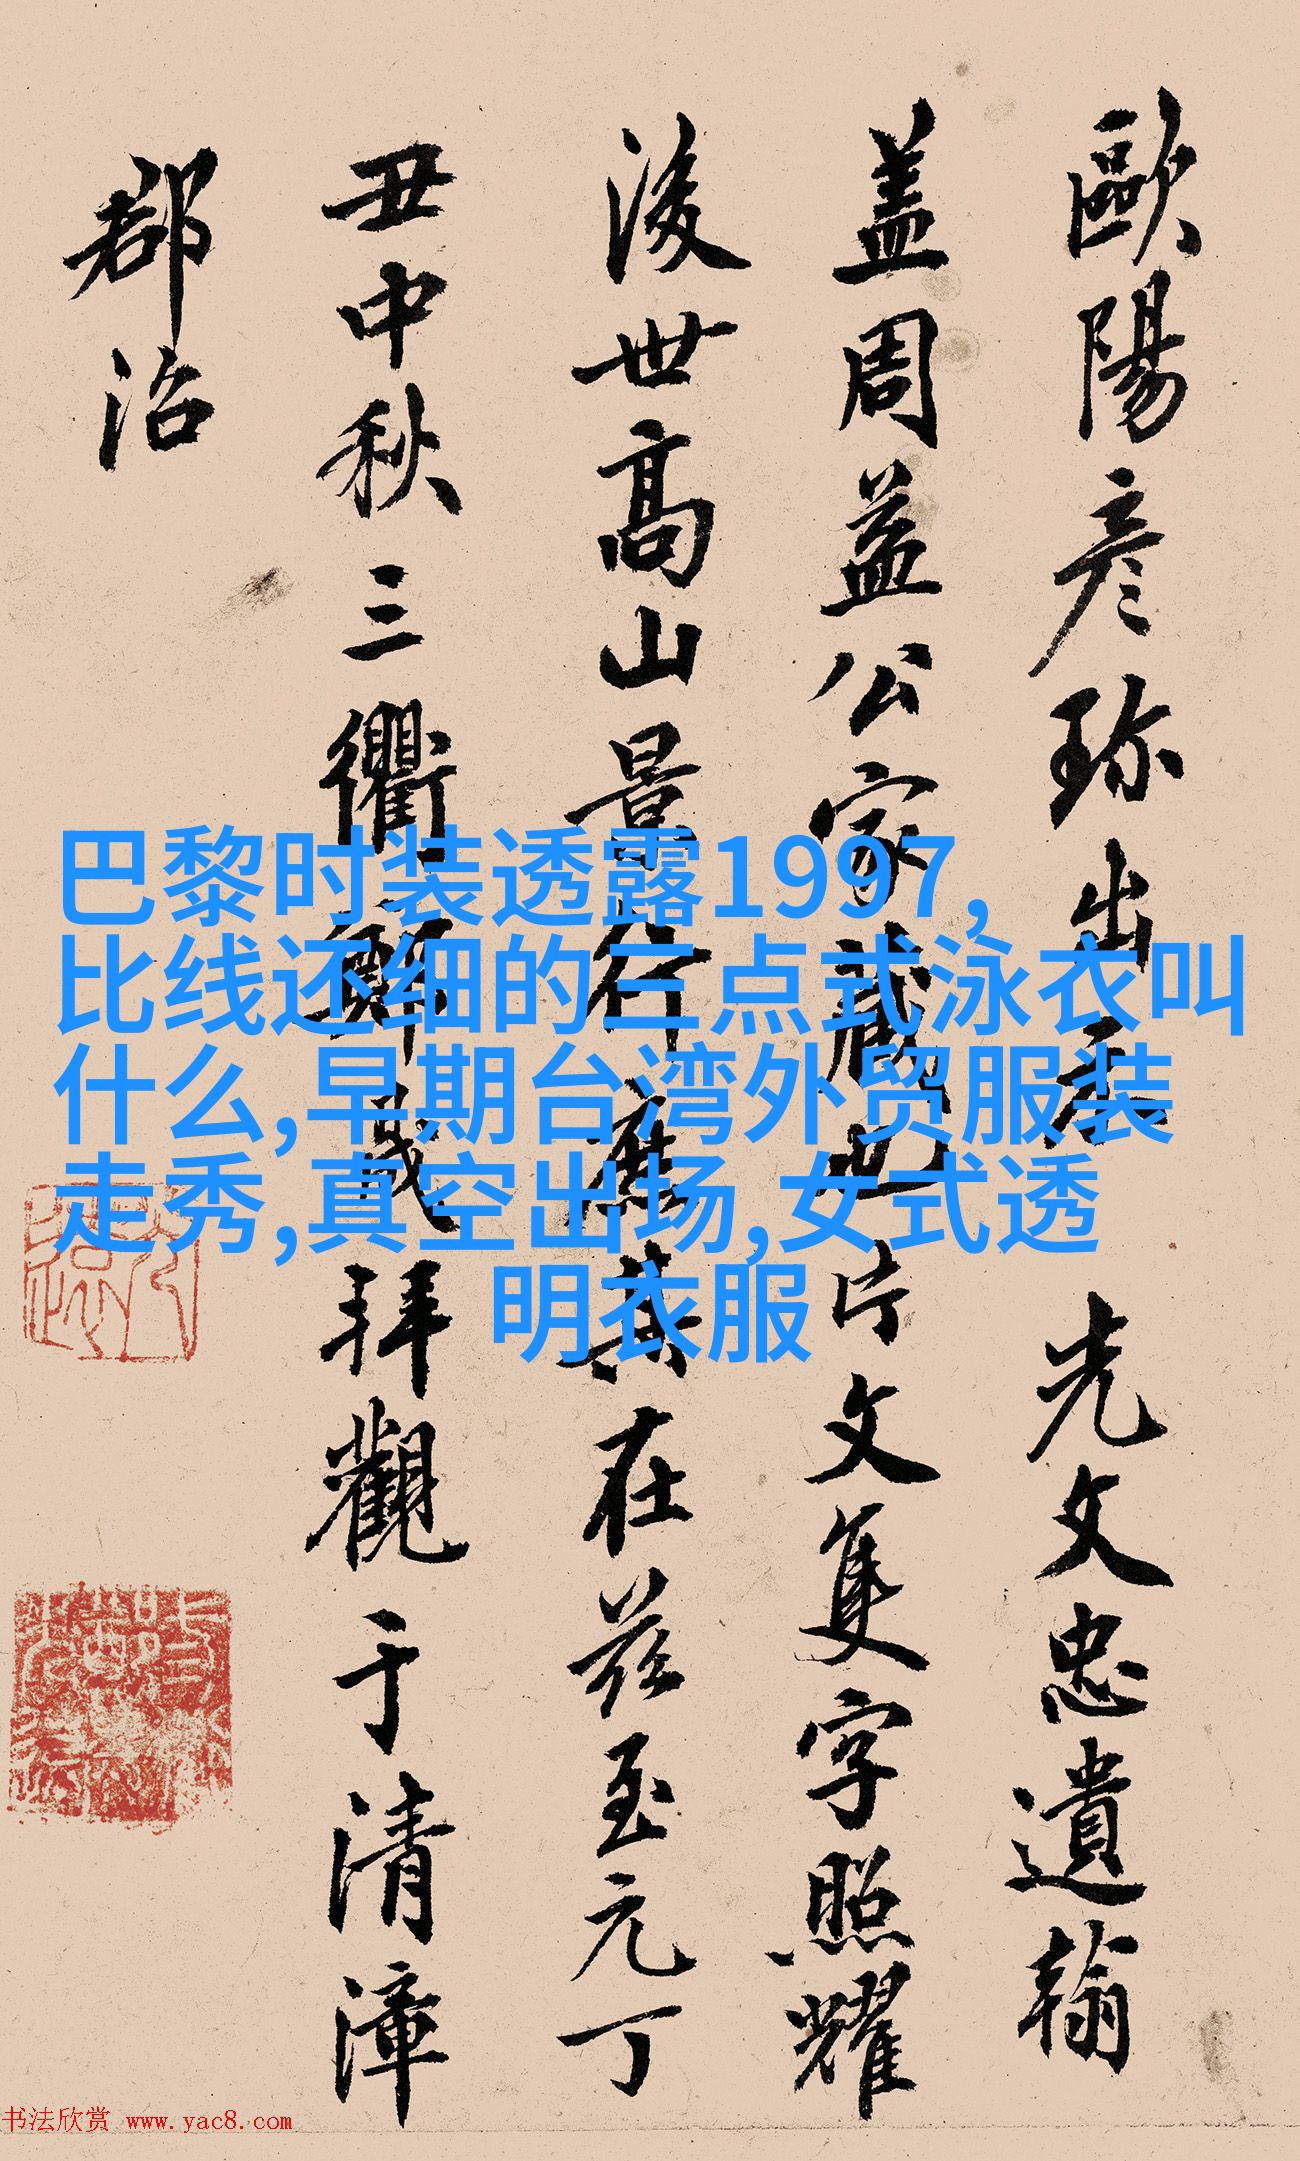 歐陽彦珎出示 光文忠遺翰
盖周益公家蔵也片文隻字照耀
後世高山景行應共在茲至元丁
丑中秋三衢鄭 拜觀于清漳
郡治
巴黎时装透露1997,
比线还细的三点式泳衣叫
什么,早期台湾外贸服装
走秀,真空出场,女式透
明衣服
书法欣赏 www.yac8.com